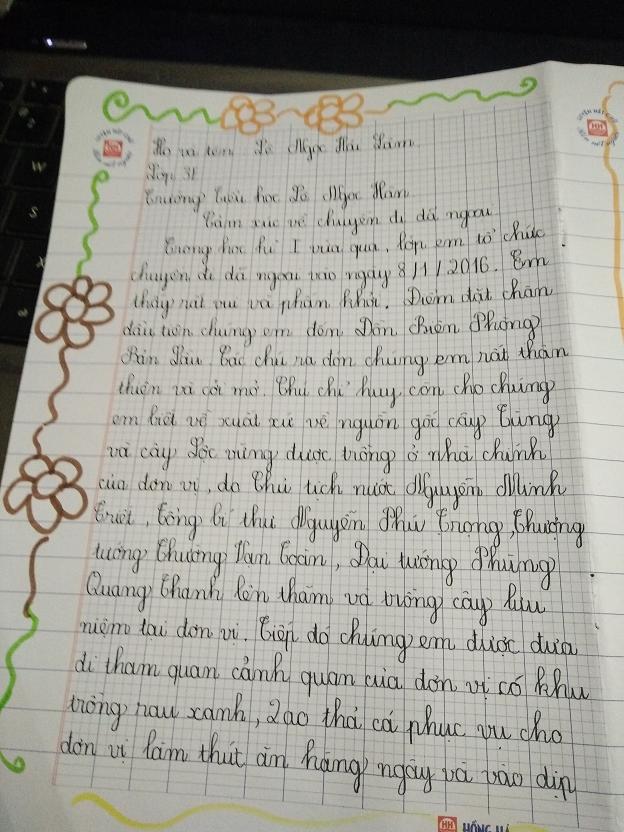 Họ và tên: Lê Ngọc Hải Lâm
Lớp 3E
Trường Tiểu học Lê Ngọc Hân
Cảm xúc về chuyến đi dã ngoại
Trong học kì I vừa qua, lớp em tổ chức
chuyến đi dã ngoại vào ngày 8/1/2016. Em
thấy rất vui và phấn khởi. Điểm đặt chân
đầu tiên chúng em đến Đồn Biên Phòng
Các chú ra đón chúng em rất thân
thiện và cởi mở. Chú chỉ huy còn cho chúng
em biết về xuất xứ về nguồn gốc cây Tùng
và cây Lộc vừng được trồng ở nhà chính
của đơn vị, do Chủ tịch nước Nguyễn Minh
Triết, Tổng bí thư Nguyễn Phú Trọng, Thượng
tướng Trương Văn Đại tướng Phùng
Quang Thanh lên thăm và trồng cây lưu
niệm tại đơn vị. Tiếp đó chúng em được đưa
đi tham quan cảnh quan của đơn vị có khu
trồng rau xanh, 2ao thả cá phục vụ cho
đơn vị làm thức ăn hằng ngày và vào dịp
HH
HH
HH HỒNG HÀ